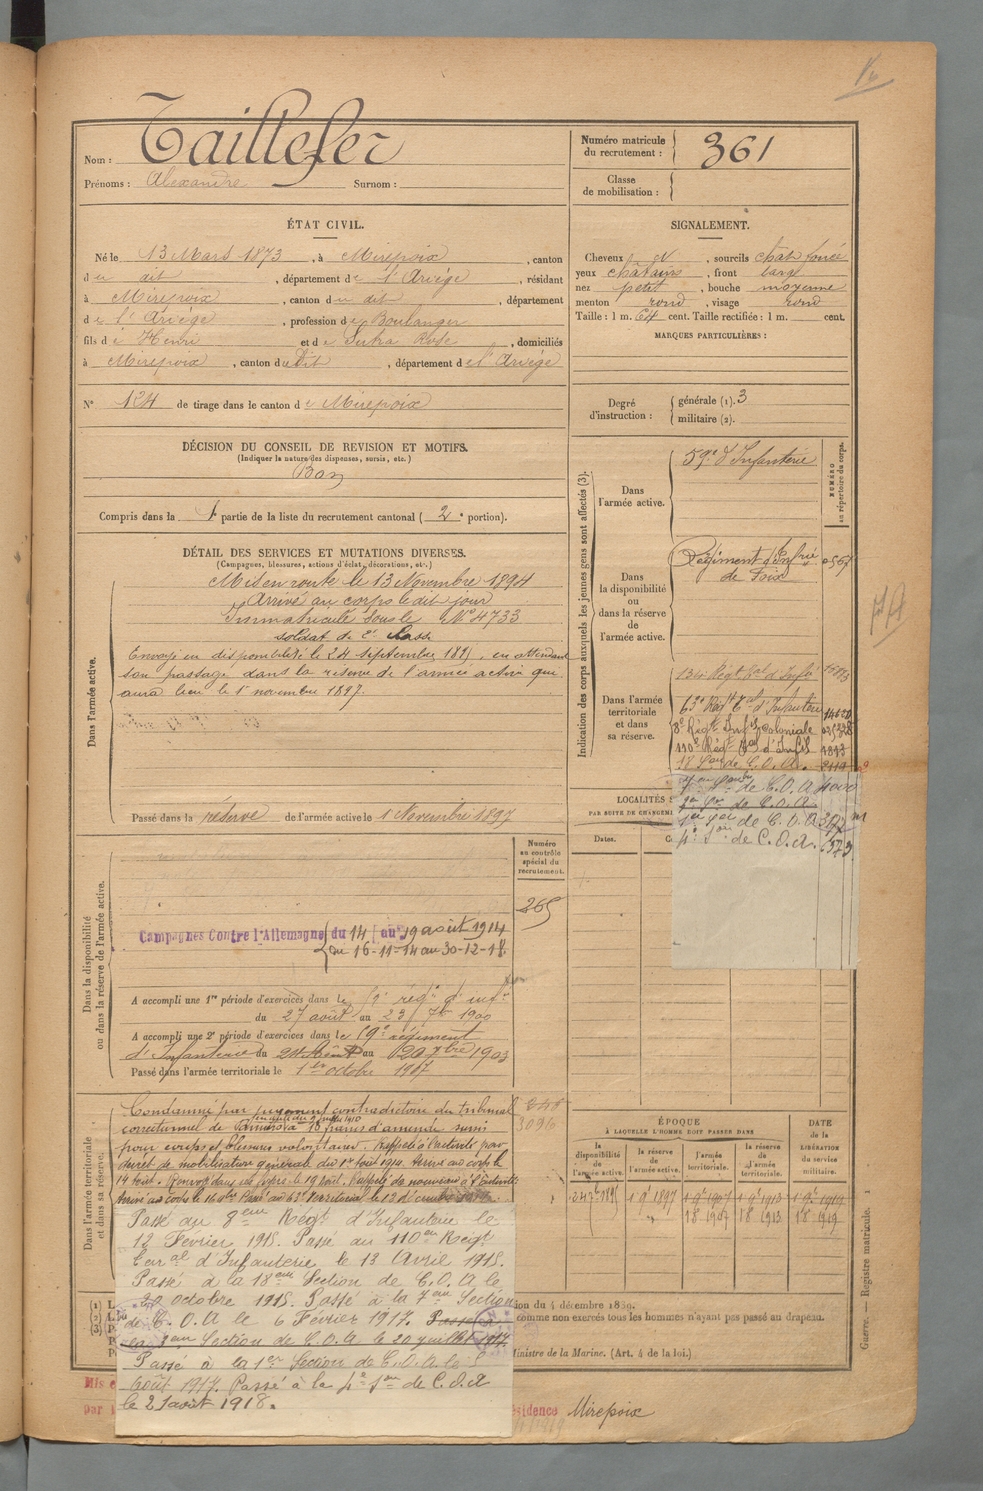 Nom : Taillefer
Prénoms : Alexandre Surnom :
Numéro matricule du recrutement : 361
Classe de mobilisation :
ÉTAT CIVIL.
Né le 13 Mars 1873, à Mirepoix, canton
du dit, département de l'Ariège, résidant
à Mirepoix, canton du dit, département
de l'Ariège, profession de Boulanger
fils de Henri et de Sutra Rose, domiciliés
à Mirepoix, canton du Dit, département de l'Ariège
N° 124 de tirage dans le canton de Mirepoix
SIGNALEMENT.
Cheveux et, sourcils chat. foncé
yeux châtains, front large
nez petit, bouche moyenne
menton rond, visage rond
Taille : 1 m. 64 cent. Taille rectifiée : 1 m. cent.
MARQUES PARTICULIÈRES :
Degré d'instruction : générale (1). 3
militaire (2).
DÉCISION DU CONSEIL DE REVISION ET MOTIFS.
(Indiquer la nature des dispenses, sursis, etc.)
Bon
Compris dans la 1 partie de la liste du recrutement cantonal ( 2e portion).
DÉTAIL DES SERVICES ET MUTATIONS DIVERSES.
(Campagnes, blessures, actions d'éclat, décorations, etc.)
Dans l'armée active.
Mis en route le 13 Novembre 1894
Arrivé au corps le dit jour
Immatriculé sous le N° 4733
soldat de 2e classe
Envoyé en disponibilité le 24 septembre 1895, en attendant
son passage dans la réserve de l'armée active qui
aura lieu le 1er novembre 1897.
Passé dans la réserve de l'armée active le 1 Novembre 1897
Indication des corps auxquels les jeunes gens sont affectés (3).
NUMÉRO au répertoire du corps.
Dans l'armée active.
59e d'Infanterie
Dans la disponibilité ou dans la réserve de l'armée active.
Régiment d'Infrie
de Foix
Dans l'armée territoriale et dans sa réserve.
134 Régt Tal d'Infie
63e Régt Tal d'Infanterie
8e Régt Infie Coloniale
110e Régt Tal d'Infie
18 Son de C.O.A.
de C.O.A.
de C.O.A.
de C.O.A.
4e Son de C.O.A.
LOCALITÉS
PAR SUITE DE CHANGEM
Dates.
Dans la disponibilité ou dans la réserve de l'armée active.
Numéro au contrôle spécial du recrutement.
265
Campagnes Contre l'Allemagne du 14 au 19 août 1914
du 16-11-14 au 30-12-18
A accompli une 1re période d'exercices dans le 59e régt d'infie
du 27 août au 23 7bre 1900
A accompli une 2e période d'exercices dans le 59e régiment
d'Infanterie du 24 Août au 20 7bre 1903
Passé dans l'armée territoriale le 1er octobre 1907
Dans l'armée territoriale et dans sa réserve.
3096
Condamné par jugement contradictoire du tribunal
correctionnel de Pamiers à 15 francs d'amende
pour coups et blessures volontaires. Rappelé à l'activité par
décret de mobilisation générale du 1er Août 1914. Arrivé au corps le
14 Août. Renvoyé dans ses foyers le 19 Août. Rappelé de nouveau à l'activité
Arrivé au corps le 16 9bre. Passé au 63e Territorial le 13 décembre 1914.
Passé au 8eme Régt d'Infanterie le
12 Février 1915. Passé au 110eme Régt
Terral d'Infanterie le 13 Avril 1915.
Passé à la 18eme Section de C.O.A le
20 octobre 1915. Passé à la 7eme Section
de C.O.A le 6 Février 1917. Passé à
la 1eme Section de C.O.A le 20 juillet 1917
Passé à la 1ere Section de C.O.A le
août 1917. Passé à la 4e Son de C.O.A
le 21 août 1918.
ÉPOQUE
À LAQUELLE L'HOMME DOIT PASSER DANS
la disponibilité de l'armée active.
la réserve de l'armée active.
l'armée territoriale.
la réserve de l'armée territoriale.
DATE de la LIBÉRATION du service militaire.
24 7bre 1895 1 9bre 1897 1 9bre 1907 1 9bre 1913 1 9bre 1919
1 8 1907 1 8 1913 1 8 1919
ion du 4 décembre 1889.
comme non exercés tous les hommes n'ayant pas passé au drapeau.
Ministre de la Marine. (Art. 4 de la loi.)
Mis e
par l
ésidence Mirepoix
Guerre. — Registre matricule. 1